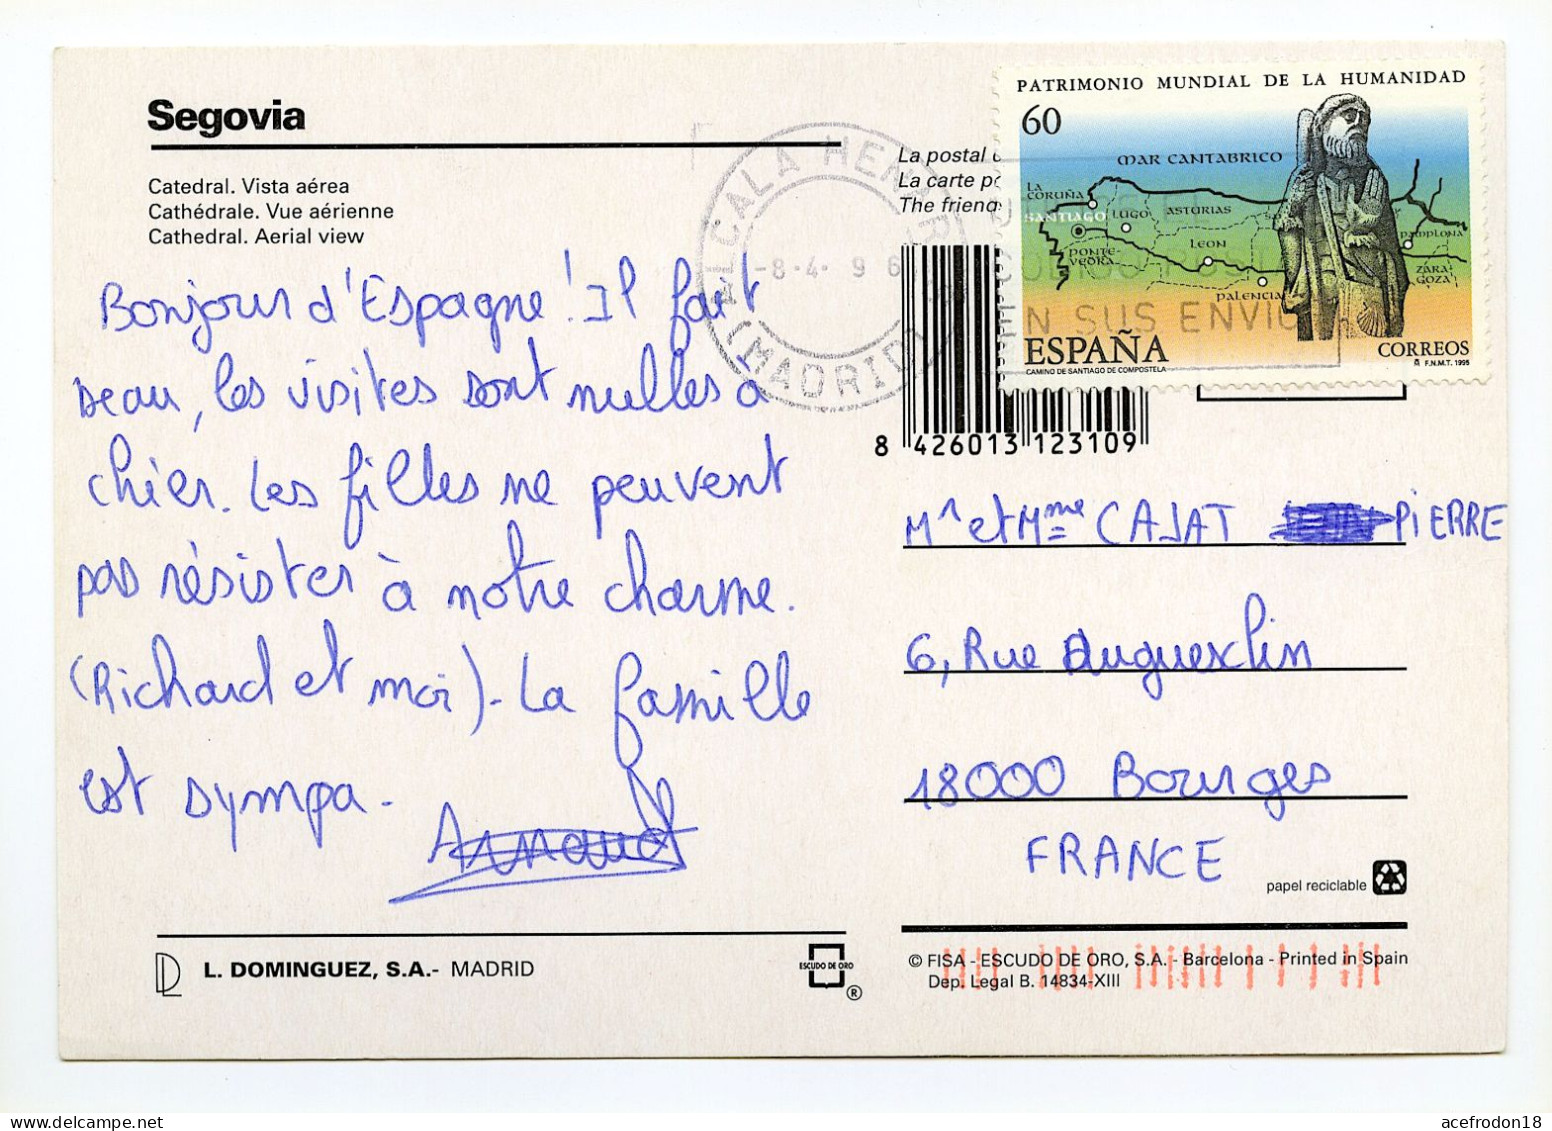 Segovia
Catedral. Vista aérea
Cathédrale. Vue aérienne
Cathedral. Aerial view
Bonjour d'Espagne! Il fait
beau, les visites sont nulles à
chier. Les filles ne peuvent
pas résister à notre charme.
(Richard et moi). La famille
est sympa.
Arnaud
L. DOMINGUEZ, S.A.- MADRID
ESCUDO DE ORO
®
ALCALA HENARES
-8.4. 96
(MADRID)
La postal
La carte
The
PATRIMONIO MUNDIAL DE LA HUMANIDAD
60
MAR CANTABRICO
LA CORUÑA
SANTIAGO
LUGO
ASTURIAS
PONTE-VEDRA
LEON
PALENCIA
PAMPLONA
ZARAGOZA
EN SUS ENVIO
ESPAÑA
CORREOS
CAMINO DE SANTIAGO DE COMPOSTELA
F.N.M.T. 1995
8 426013 123109
Mr et Mme CAJAT PIERRE
6, Rue duguesclin
18000 Bourges
FRANCE
papel reciclable
© FISA - ESCUDO DE ORO, S.A. - Barcelona - Printed in Spain
Dep. Legal B. 14834-XIII
acefrodon18